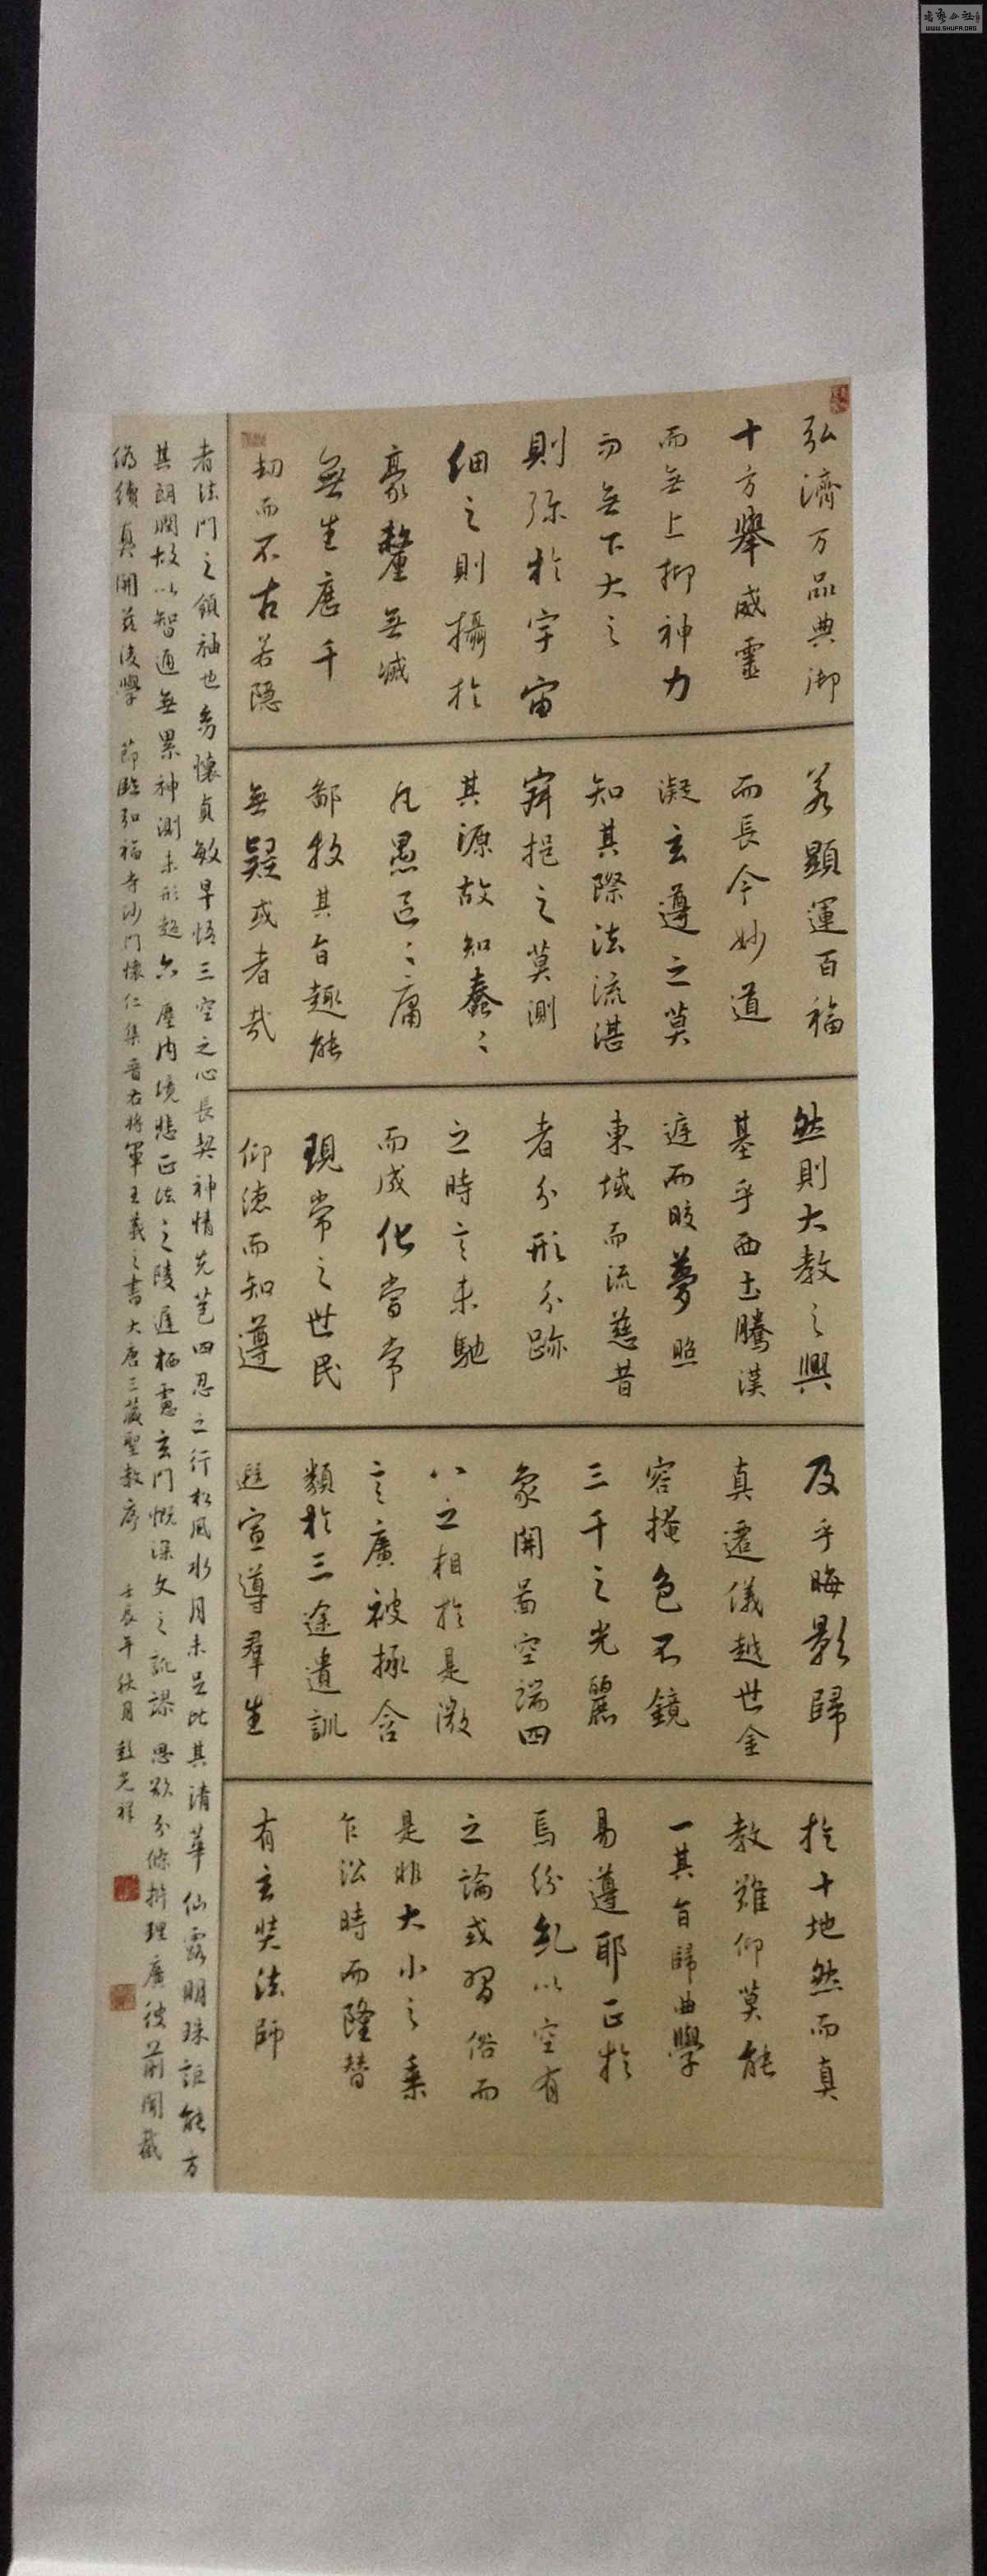 弘濟万品典御
十方舉威靈
而無上抑神力
而無下大之
則弥於宇宙
細之則攝於
豪釐無滅
無生歷千
劫而不古若隱
若顯運百福
而長今妙道
凝玄遵之莫
知其際法流湛
寂挹之莫測
其源故知蠢〻
凡愚區〻庸
鄙投其旨趣能
無疑或者哉
然則大教之興
基乎西土騰漢
庭而皎夢照
東域而流慈昔
者分形分跡
之時言未馳
而成化當常
現常之世民
仰德而知遵
及乎晦影歸
真遷儀越世金
容掩色不鏡
三千之光麗
象開圖空端四
八之相於是微
言廣被拯含
類於三途遺訓
遐宣導羣生
於十地然而真
教難仰莫能
一其旨歸曲學
易遵耶正於
焉紛糺以空有
之論或習俗而
是非大小之乘
乍沿時而隆替
有玄奘法師
者法門之領袖也幼懷貞敏早悟三空之心長契神情先苞四忍之行松風水月未足比其清華仙露明珠詎能方
其朗潤故以智通無累神測未形超六塵內境悲正法之陵遲栖慮玄門慨深文之訛謬思欲分條析理廣彼前聞截
偽續真開茲後學 節臨弘福寺沙門懷仁集晉右將軍王羲之書大唐三藏聖教序 壬辰年秋月 彭光祥
WWW.SHUFA.ORG